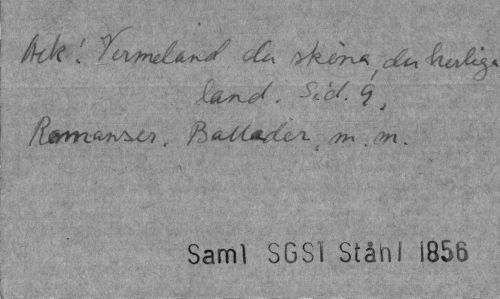 Ack! Vermeland du sköna, du herliga
land. Sid. 9,
Romanser. Ballader, m. m.
Saml SGS1 Ståhl 1856